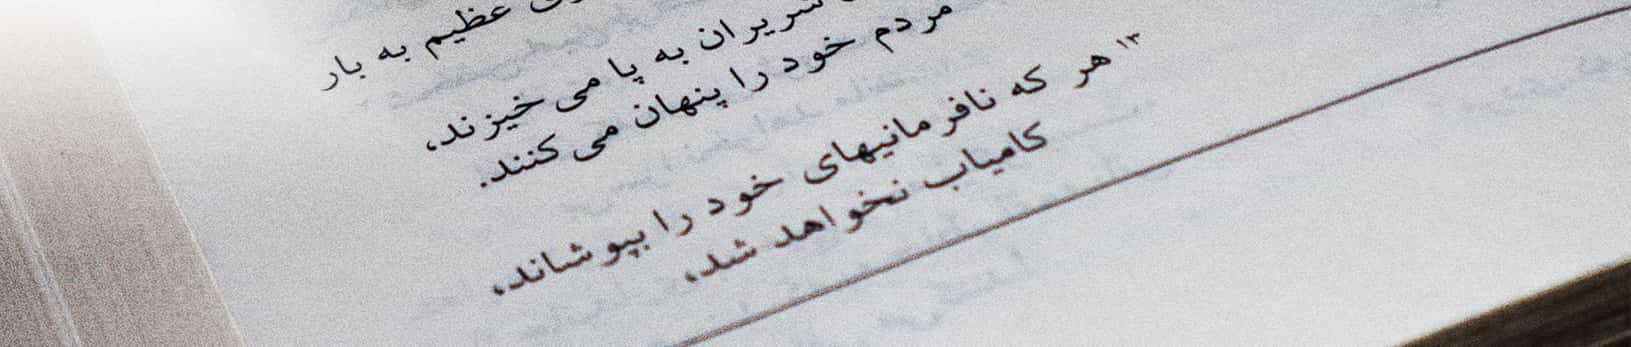 عظیم به بار
شریران به پا می خیزند،
مردم خود را پنهان می کنند.
۱۳ هر که نافرمانیهای خود را بپوشاند،
کامیاب نخواهد شد،